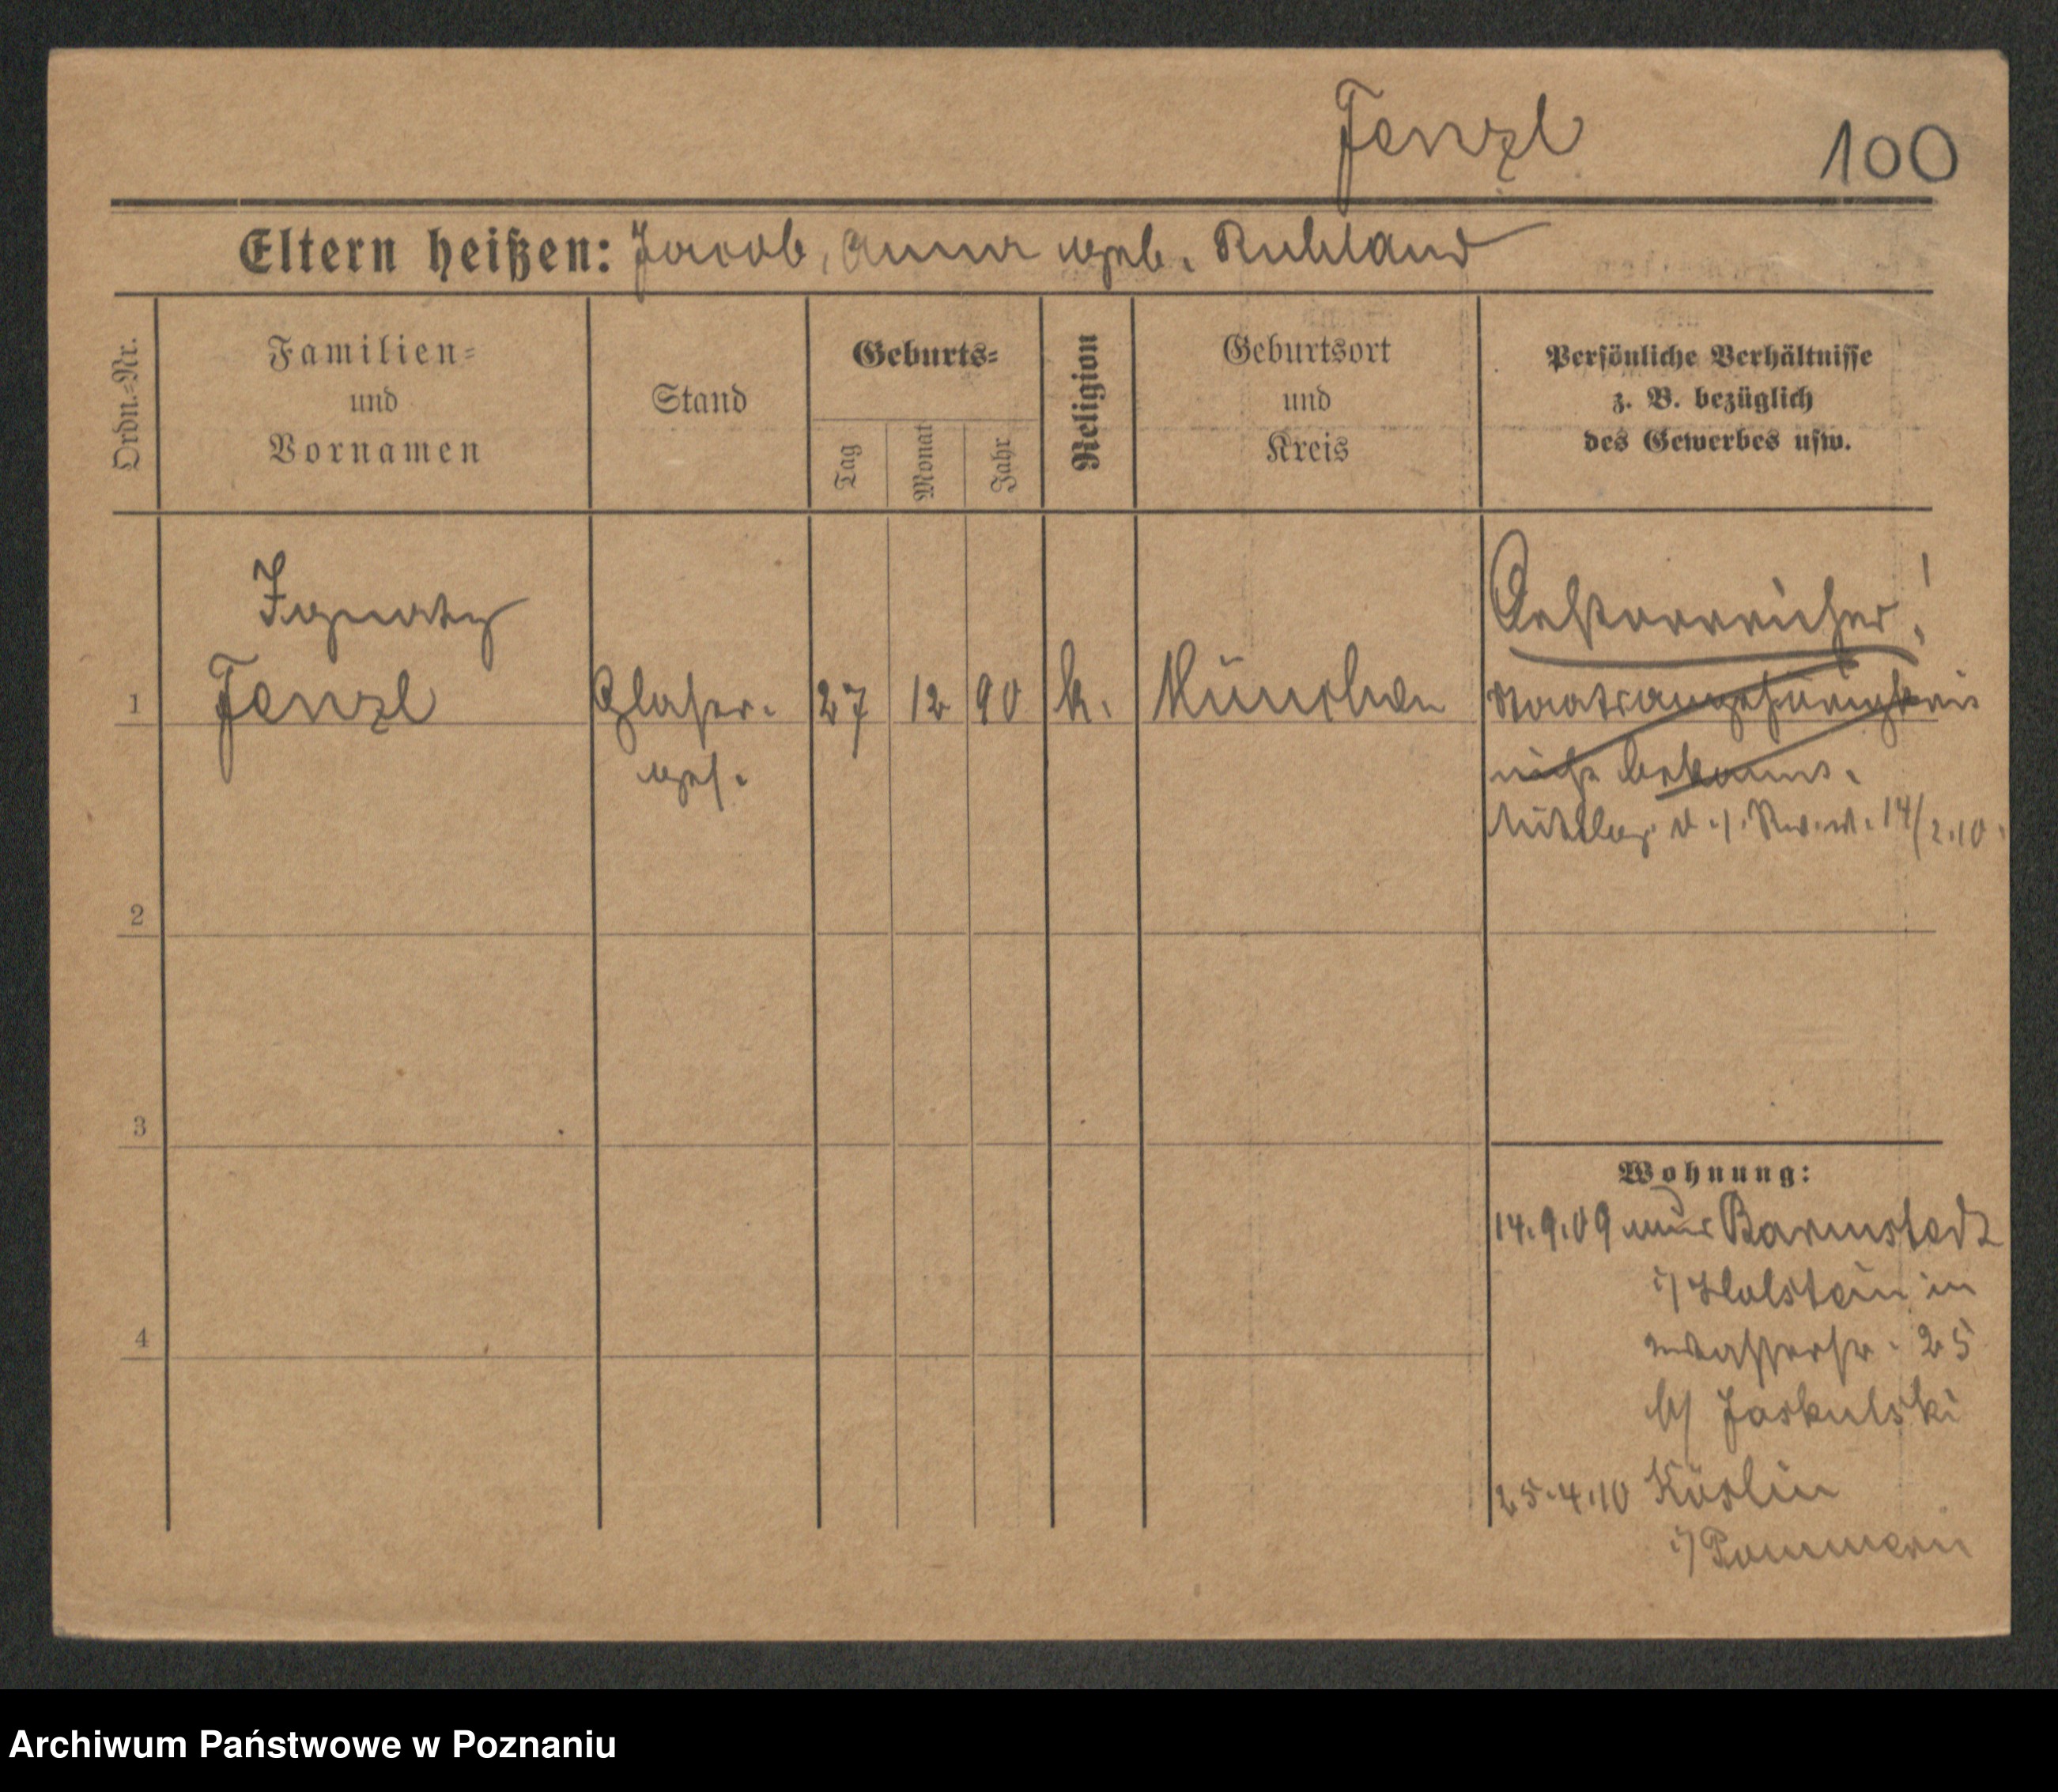 Fenzl
100
Eltern heißen: Jacob, Anna geb. Ruhland
Ordn.=Nr.
Familien=
und
Vornamen
Stand
Geburts=
Tag
Monat
Jahr
Religion
Geburtsort
und
Kreis
Persönliche Verhältnisse
z. B. bezüglich
des Gewerbes usw.
Ignatz
Oesterreicher!
1 Fenzl Glaser. 27 12 90 k. München Staatsangehörigkeit
ges. nicht bekannt.
14/2.10.
2
3
Wohnung:
14.9.09 aus Barmstedt
i/ Holstein in
Wasserstr. 25
b/ Jaskulski
4
25.4.10 Köslin
i/ Pommern
Archiwum Państwowe w Poznaniu